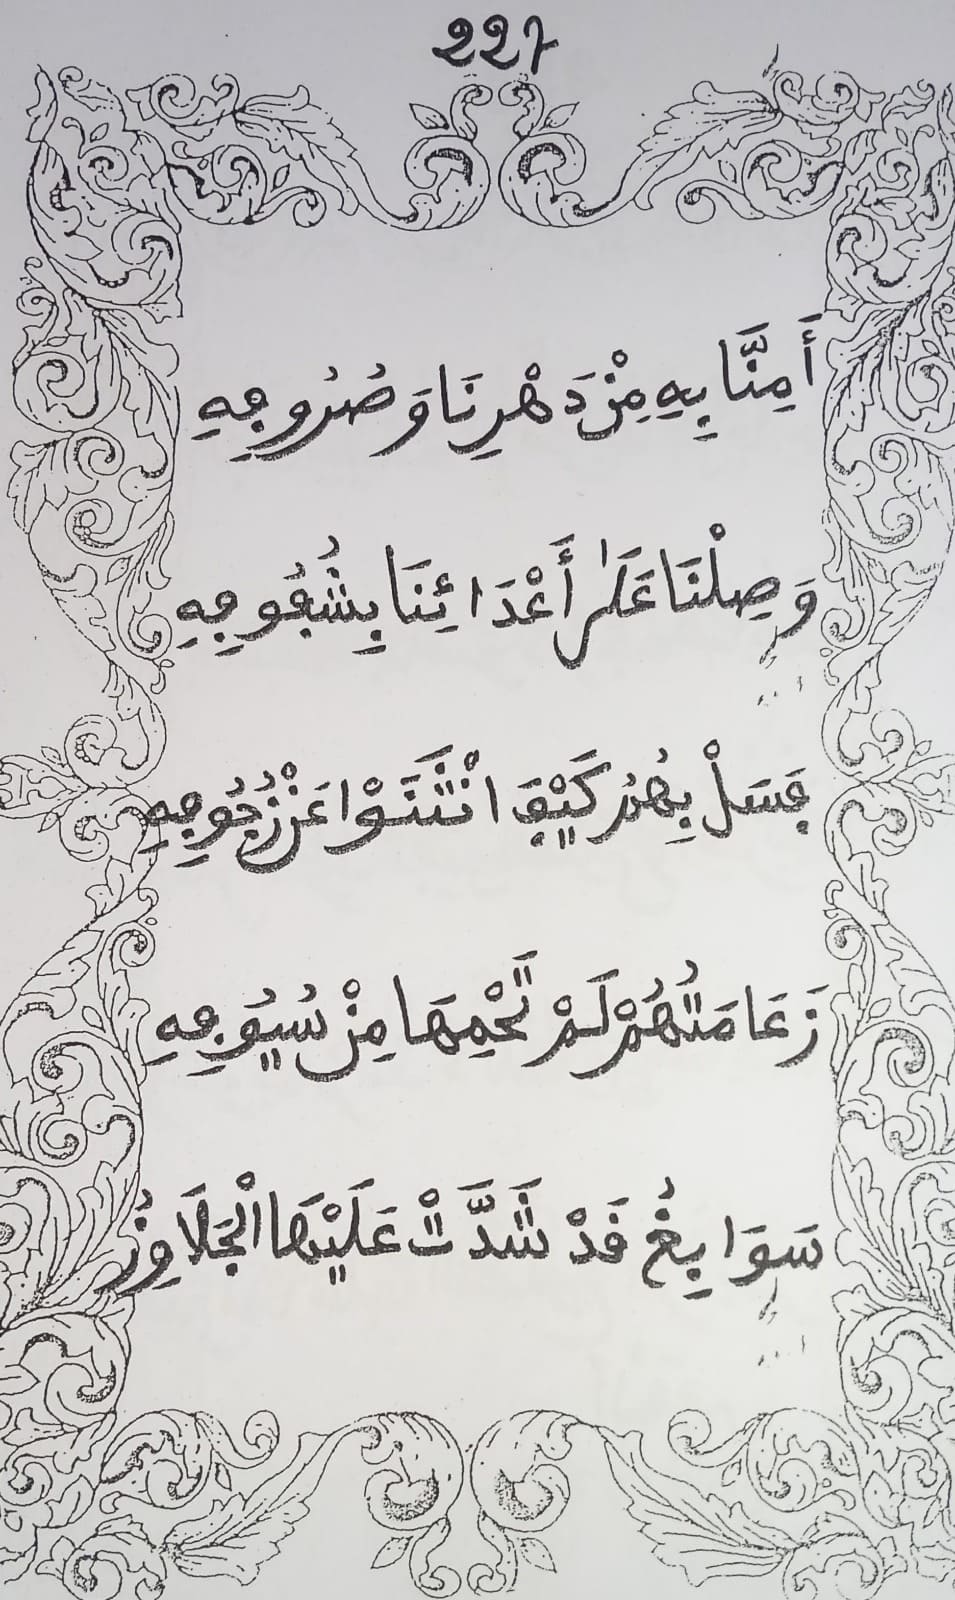 227
أَمِنَّا بِهِ مِنْ دَهْرِنَا وَصُرُوفِهِ
وَصِلْنَا عَلَىٰ أَعْدَائِنَا بِشُفُوفِهِ
فَسَلْ بِهُمُ كَيْفَ انْثَنَوْا عَنْ زُحُوفِهِ
زَعَامَتُهُمْ لَمْ تَحْمِهَا مِنْ سُيُوفِهِ
سَوَابِغُ قَدْ شَدَّتْ عَلَيْهَا الْجَلَاوِزُ